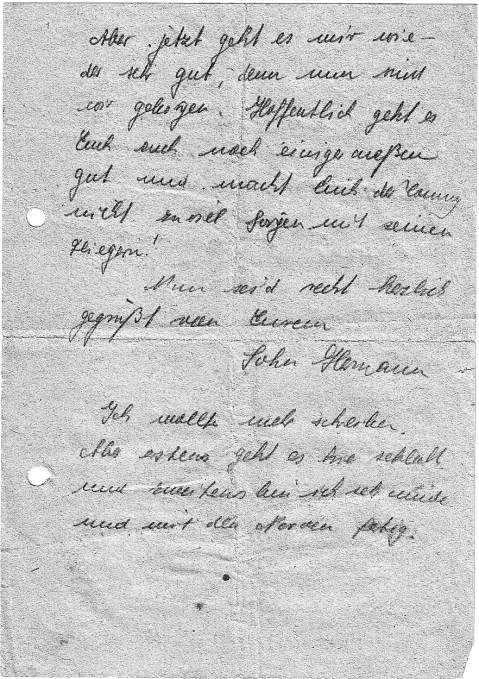 Aber jetzt geht es mir wie-
der sehr gut, denn nun sind
wir geborgen. Hoffentlich geht es
Euch auch noch einigermaßen
gut und macht Euch der Tommy
nicht zuviel Sorgen mit seinen
Fliegern!
Nun seid recht herzlich
gegrüßt von Eurem
Sohn Hermann
Ich wollte mehr schreiben.
Aber erstens geht es hier schlecht
und zweitens bin ich sehr müde
und mit den Nerven fertig.